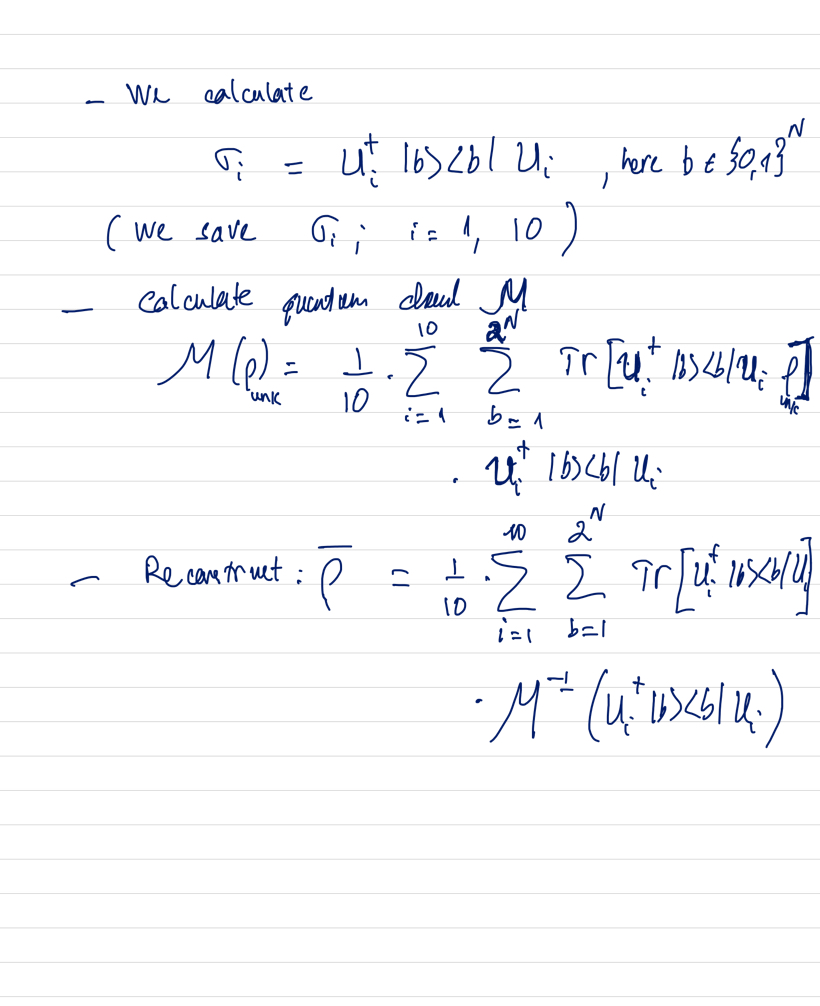 - We calculate
σᵢ = Uᵢ† |b><b| Uᵢ , here b ∈ {0,1}ᴺ
(We save σᵢ ; i = 1, 10 )
- Calculate quantum M
M(ρ_unk) = 1/10 . Σ_{i=1}^{10} Σ_{b=1}^{2^N} Tr[Uᵢ† |b><b| Uᵢ ρ_unk]
. Uᵢ† |b><b| Uᵢ
- Reconstruct : ρ̅ = 1/10 . Σ_{i=1}^{10} Σ_{b=1}^{2^N} Tr[Uᵢ† |b><b| U]
. M⁻¹ (Uᵢ† |b><b| Uᵢ)